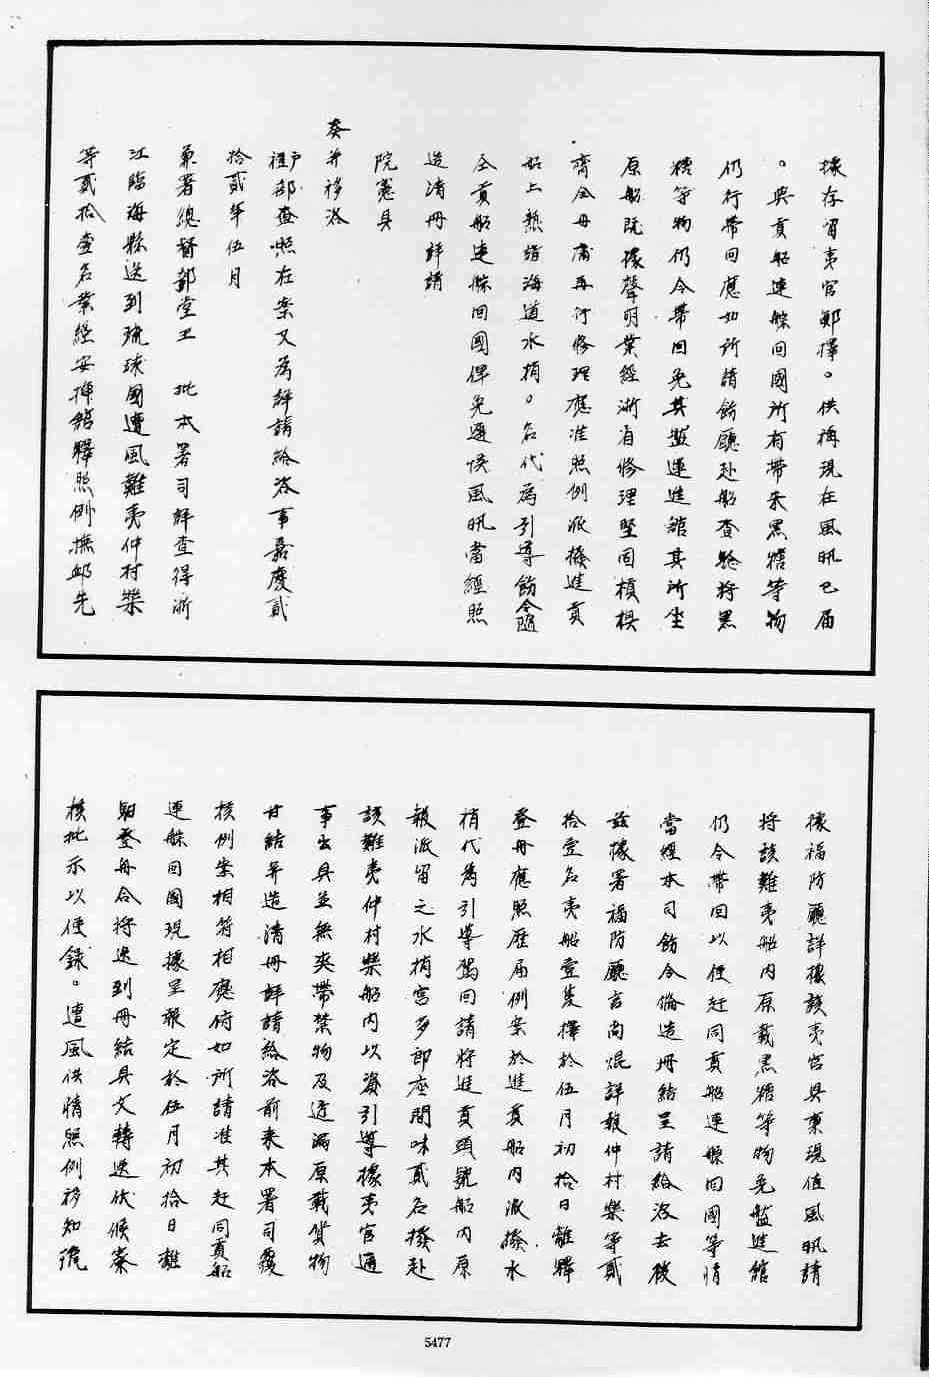 據存留夷官鄭擇。供稱現在風帆已届
。與貢船連䑸回國所有帶來黑糖等物
仍行帶回應如所請飭廳赴船查驗將黑
糖等物仍令帶回免其盤運進館其所坐
原船既據聲明業經浙省修理堅固槓椇
齊全毋庸再行修理應准照例派撥進貢
船上熟諳海道水梢。名代為引導飭令隨
仝貢船連䑸回國俾免遲悮風帆當經照
造清冊詳請
院憲具
奏并移咨
禮户部查照在案又為詳請給咨事嘉慶貳
拾貳年伍月
兼署總督部堂王 批本署司詳查得浙
江臨海縣送到琉球國遭風難夷仲村渠
等貳拾壹名業經安揷館驛照例撫卹先
據福防廳詳據該夷官具稟現值風帆請
將該難夷船內原載黑糖等物免盤進館
仍令帶回以便赶同貢船連䑸回國等情
當經本司飭令俻造冊結呈請給咨去後
兹據署福防廳言尚焜詳報仲村樂等貳
拾壹名夷船壹隻擇於伍月初拾日離驛
登舟應照歷届例案於進貢船內派撥水
梢代為引導駕回請將進貢頭號船內原
報派留之水梢宮多郎座間味貳名撥赴
該難夷仲村渠船內以資引導據夷官通
事出具並無夾帶禁物及透漏原載貨物
甘結并造清冊詳請給咨前來本署司覆
核例案相符相應俯如所請准其赶同貢船
連䑸回國現據呈報定於伍月初拾日離
馹登舟合將送到冊結具文轉送伏候察
核批示以便錄。遭風供情照例移知琉
5477